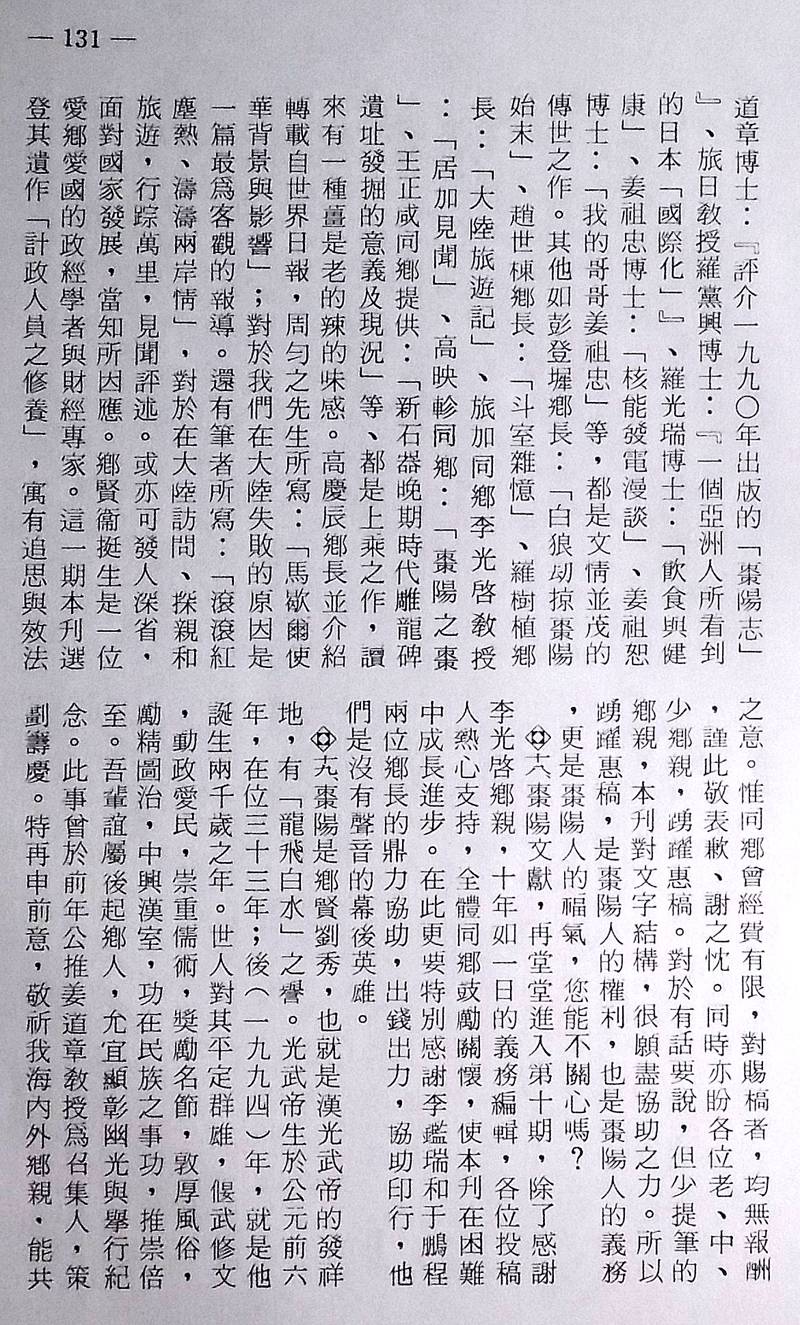 — 131 —
道章博士：『評介一九九〇年出版的「棗陽志」
』、旅日教授羅黨興博士：『一個亞洲人所看到
的日本「國際化」』、羅光瑞博士：「飲食與健
康」、姜祖忠博士：「核能發電漫談」、姜祖恕
博士：「我的哥哥姜祖忠」等，都是文情並茂的
傳世之作。其他如彭登墀鄉長：「白狼劫掠棗陽
始末」、趙世棟鄉長：「斗室雜憶」、羅樹植鄉
長：「大陸旅遊記」、旅加同鄉李光啓教授
：「居加見聞」、高映軫同鄉：「棗陽之棗
」、王正咸同鄉提供：「新石器晚期時代雕龍碑
遺址發掘的意義及現況」等、都是上乘之作，讀
來有一種薑是老的辣的味感。高慶辰鄉長並介紹
轉載自世界日報，周勻之先生所寫：「馬歇爾使
華背景與影響」；對於我們在大陸失敗的原因是
一篇最爲客觀的報導。還有筆者所寫：「滾滾紅
塵熱、濤濤兩岸情」，對於在大陸訪問、探親和
旅遊，行踪萬里，見聞評述。或亦可發人深省，
面對國家發展，當知所因應。鄉賢衞挺生是一位
愛鄉愛國的政經學者與財經專家。這一期本刊選
登其遺作「計政人員之修養」，寓有追思與效法
之意。惟同鄉會經費有限，對賜稿者，均無報酬
，謹此敬表歉、謝之忱。同時亦盼各位老、中、
少鄉親，踴躍惠稿。對於有話要說，但少提筆的
鄉親，本刊對文字結構，很願盡協助之力。所以
踴躍惠稿，是棗陽人的權利，也是棗陽人的義務
，更是棗陽人的福氣，您能不關心嗎？
六棗陽文獻，再堂堂進入第十期，除了感謝
李光啓鄉親，十年如一日的義務編輯，各位投稿
人熱心支持，全體同鄉鼓勵關懷，使本刊在困難
中成長進步。在此更要特別感謝李鑑瑞和于鵬程
兩位鄉長的鼎力協助，出錢出力，協助印行，他
們是沒有聲音的幕後英雄。
棗陽是鄉賢劉秀，也就是漢光武帝的發祥
地，有「龍飛白水」之譽。光武帝生於公元前六
年，在位三十三年；後（一九九四）年，就是他
誕生兩千歲之年。世人對其平定群雄，偃武修文
，勤政愛民，崇重儒術，獎勵名節，敦厚風俗，
勵精圖治，中興漢室，功在民族之事功，推崇倍
至。吾輩誼屬後起鄉人，允宜顯彰幽光與舉行紀
念。此事曾於前年公推姜道章教授爲召集人，策
劃壽慶。特再申前意，敬祈我海內外鄉親，能共